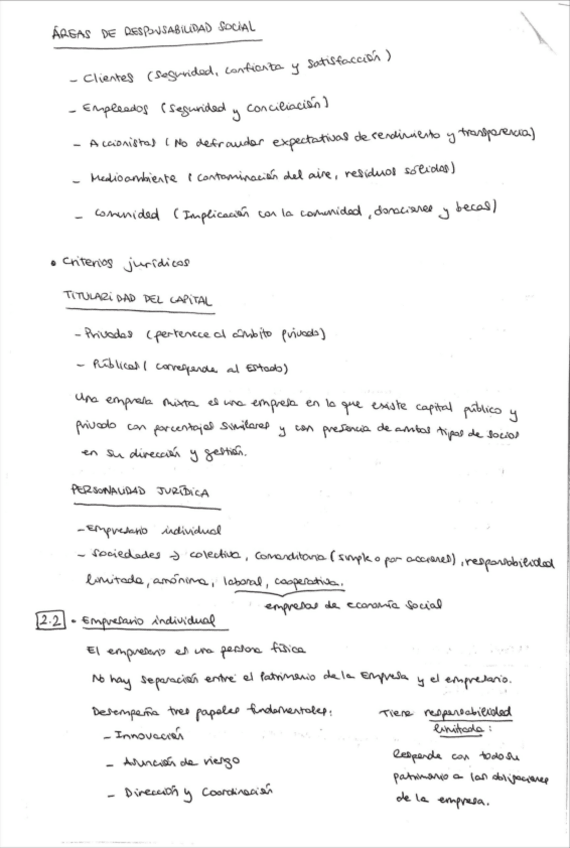 ÁREAS DE RESPONSABILIDAD SOCIAL
- Clientes (seguridad, confianza y satisfacción)
- Empleados (seguridad y conciliación)
- Accionistas (No defraudar expectativas de rendimiento y transparencia)
- Medioambiente (contaminación del aire, residuos sólidos)
- Comunidad (Implicación con la comunidad, donaciones y becas)
• Criterios jurídicos
TITULARIDAD DEL CAPITAL
- Privadas (pertenece al ámbito privado)
- Públicas (corresponde al Estado)
Una empresa mixta es una empresa en la que existe capital público y
privado con porcentajes similares y con presencia de ambos tipos de socios
en su dirección y gestión.
PERSONALIDAD JURÍDICA
- Empresario individual
- Sociedades → colectiva, Comanditaria (simple o por acciones), responsabilidad
limitada, anónima, laboral, cooperativa.
empresas de economía social
2.2 • Empresario individual
El empresario es una persona física
No hay separación entre el Patrimonio de la Empresa y el empresario.
Desempeña tres papeles fundamentales:
- Innovación
- Asunción de riesgo
- Dirección y Coordinación
Tiene responsabilidad
limitada:
Responde con todo su
patrimonio a las obligaciones
de la empresa.